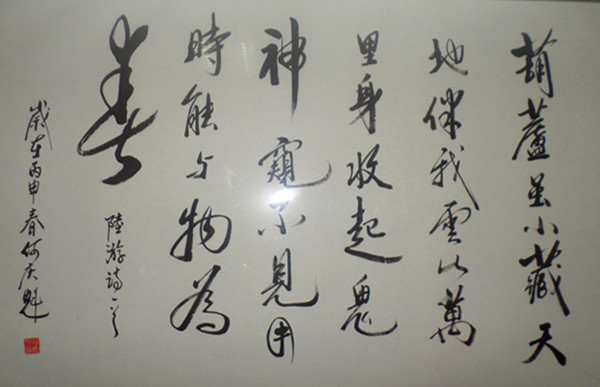 葫蘆虽小藏天
地伴我雲山萬
里身收起鬼
神窺不見用
時能与物為
春
陸游詩一首
歲在丙申春何庆魁